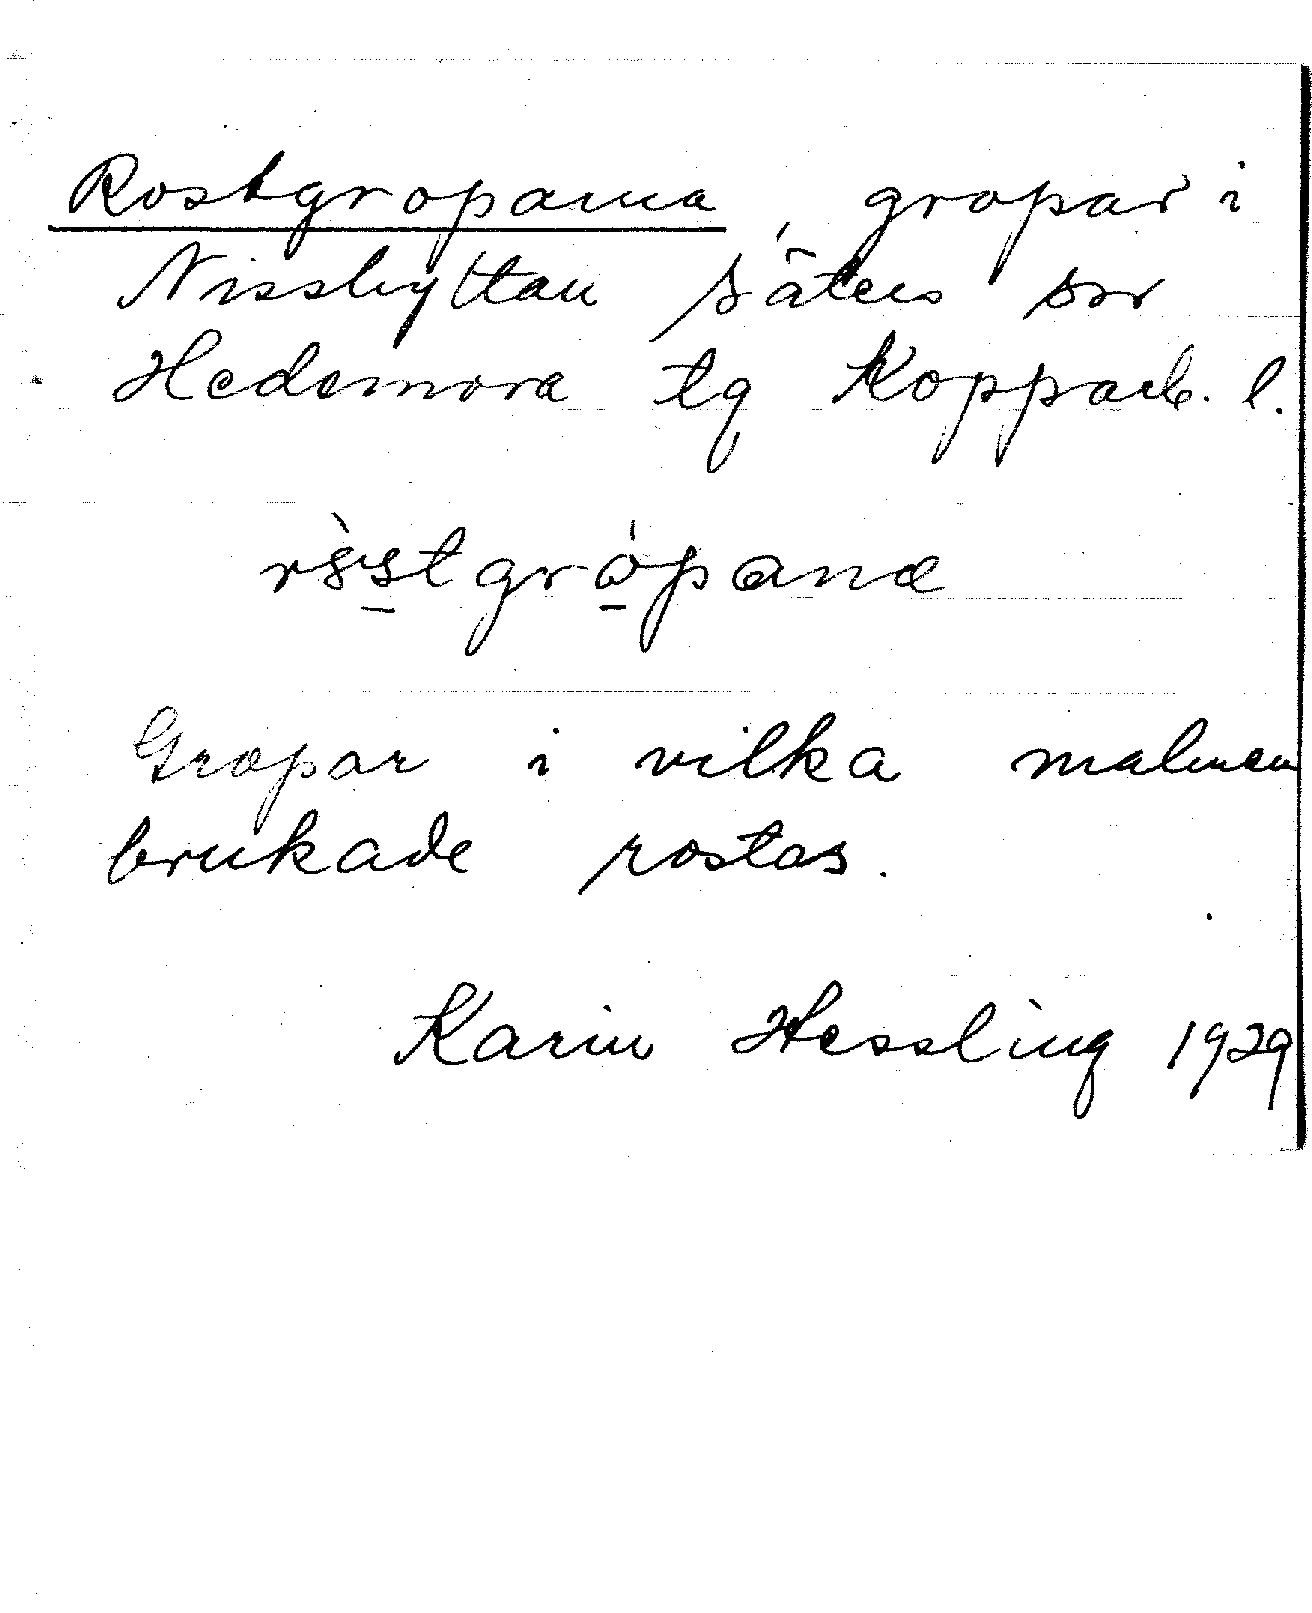 Rostgroparna, gropar i
Nisshyttan Säters sn
Hedemora tg Kopparb. l.
Gropar i vilka malmen
brukade rostas.
Karin Hessling 1929